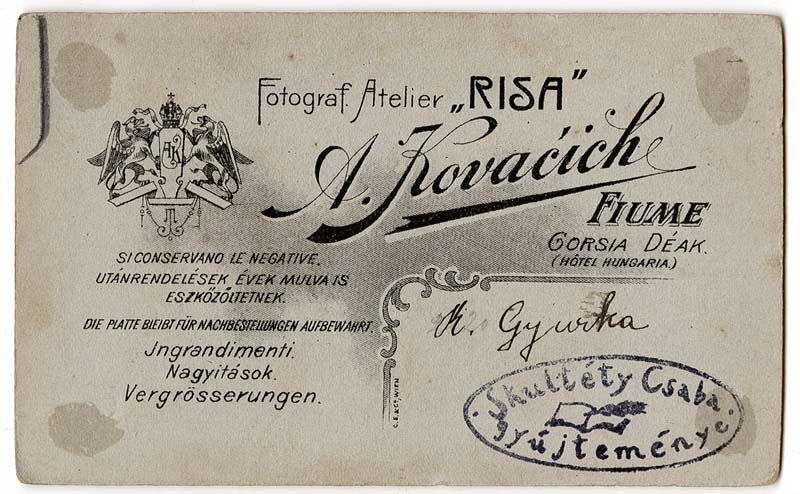 Fotograf. Atelier „RISA”
A. Kovaćich
FIUME
CORSIA DÉAK.
(HÔTEL HUNGARIA.)
AK
SI CONSERVANO LE NEGATIVE.
UTÁNRENDELÉSEK ÉVEK MULVA IS
ESZKÖZÖLTETNEK.
DIE PLATTE BLEIBT FÜR NACHBESTELLUNGEN AUFBEWAHRT.
Jngrandimenti.
Nagyitások.
Vergrösserungen.
K. Gyurka
C.E.&Cº, WIEN
Skultéty Csaba
gyűjteménye